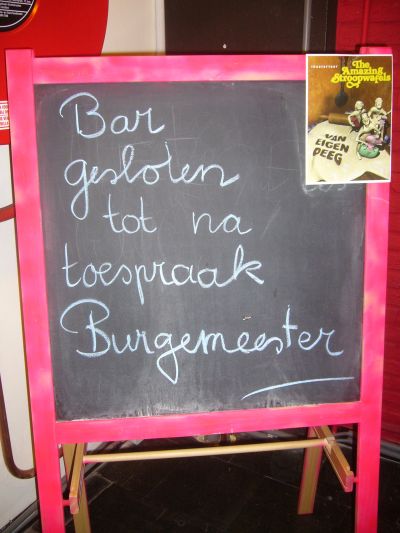 Bar
gesloten
tot na
toespraak
Burgemeester
The
Amazing
Stroopwafels
VAN
EIGEN
DEEG